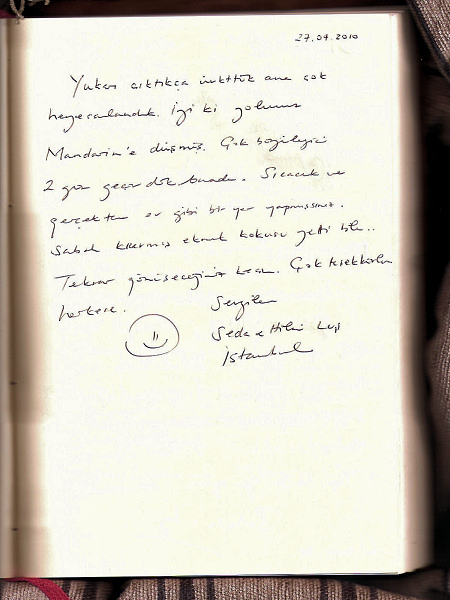 27.04.2010
Yukarı çıktıkça ürktük ama çok
heyecanlandık. İyi ki yolumuz
Mandarin'e düşmüş. Çok büyüleyici
2 gün geçirdik burada. Sıcacık ve
gerçekten ev gibi bir yer yapmışsınız.
Sabah kızarmış ekmek kokusu yetti bile..
Tekrar görüşeceğimiz kesin. Çok teşekkürler
herkese.
Sevgiler
Seda Hilmi
İstanbul